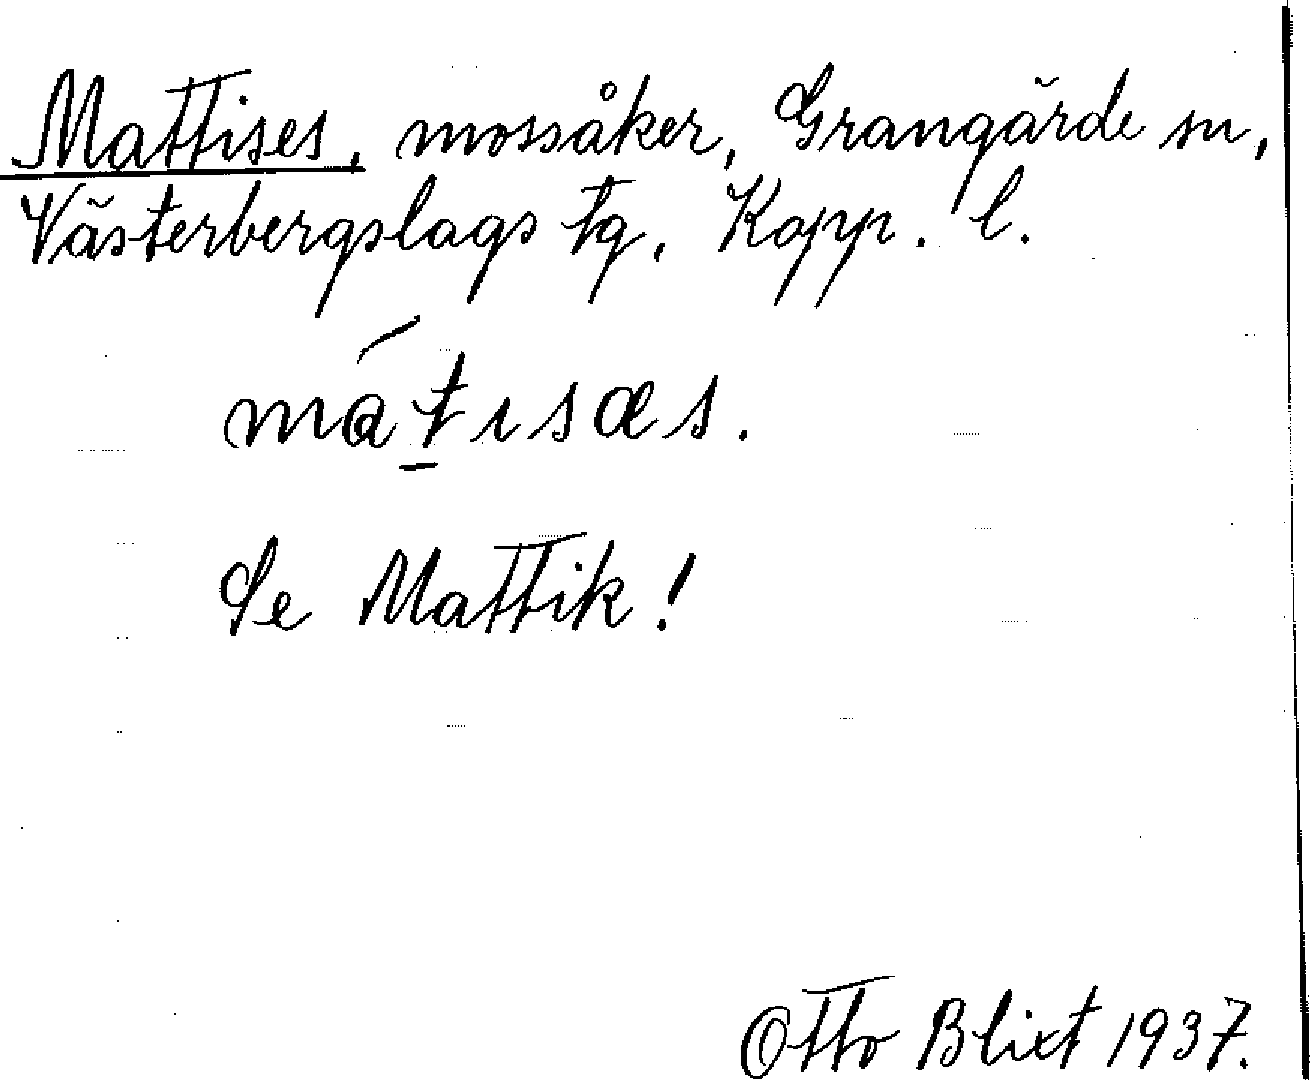 Mattises, mossåker, Grangärde sn,
Västerbergslags tg, Kopp. l.
mát̠ɩsæs.
Se Mattik!
Otto Blixt 1937.